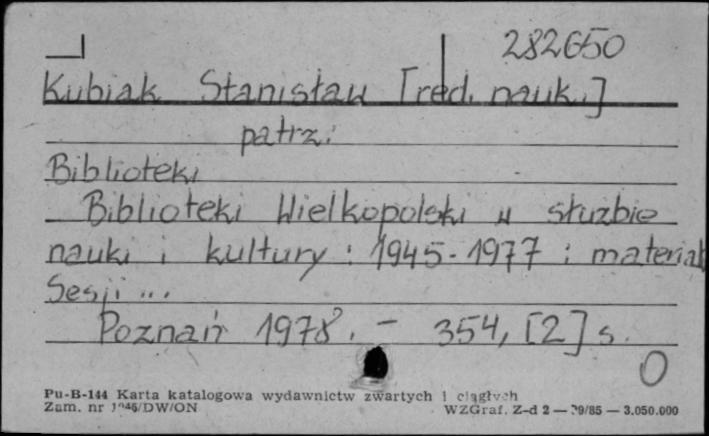 282650
Kubiak Stanisław [red. nauk.]
patrz:
Biblioteki
Biblioteki Wielkopolski w służbie
nauki i kultury : 1945-1977 : materiał
Sesji ...
Poznań 1978. - 354, [2] s.
0
Pu-B-144 Karta katalogowa wydawnictw zwartych i ciągłych
Zam. nr /DW/ON WZGraf. Z-d 2 — 29/85 — 3.050.000